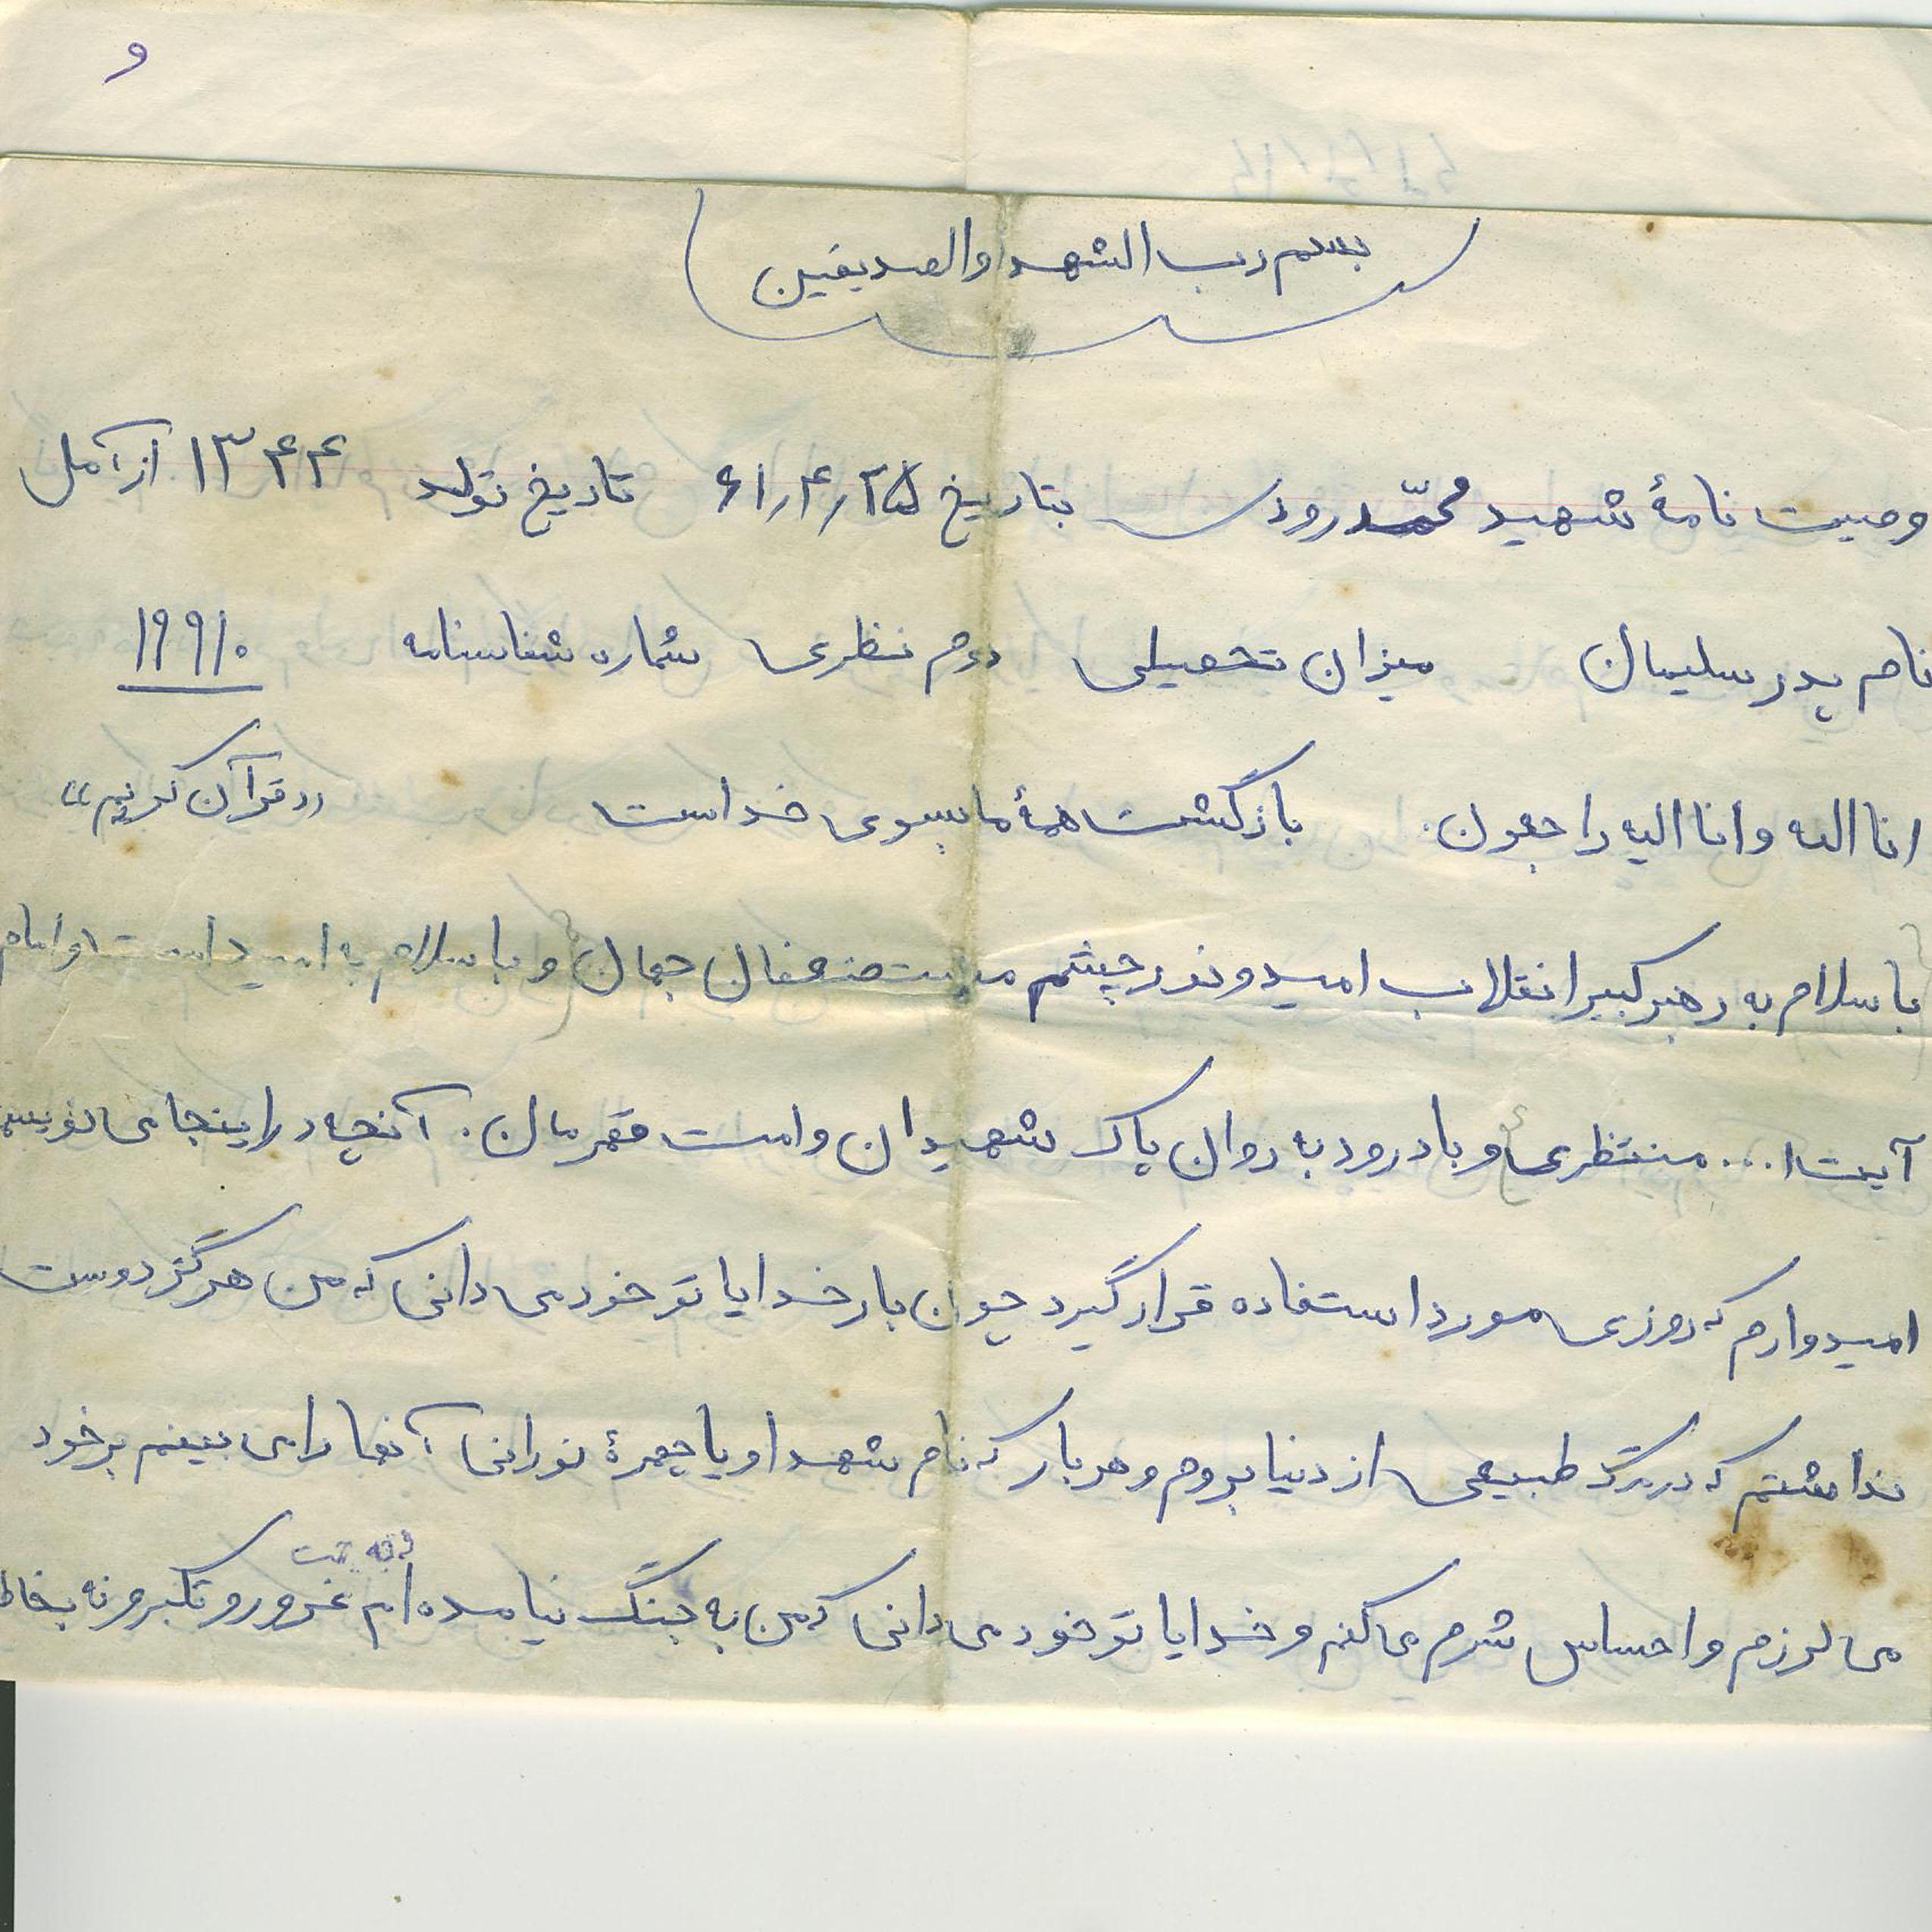 و
بسم رب الشهدا والصدیقین
وصیت نامهٔ شهید محمّد رودی بتاریخ ۶۱٫۴٫۲۵ تاریخ تولد ۱۳۴۴ از آمل
نام پدر سلیمان میزان تحصیلی دوم نظری شماره شناسنامه ۱۹۹۱۰
انا لله وانا الیه راجعون. بازگشت همهٔ ما بسوی خداست ((قرآن کریم))
با سلام به رهبر کبیر انقلاب امید و نور چشم مستضعفان جهان و با سلام به امید امت و امام
آیت ا... منتظری و با درود به روان پاک شهیدان و امت قهرمان. آنچه در اینجا می نویسم
امیدوارم که روزی مورد استفاده قرار گیرد چون بار خدایا تو خود می دانی که من هرگز دوست
نداشتم که در مرگ طبیعی از دنیا بروم و هر بار که نام شهدا و یا چهرهٔ نورانی آنها را می بینم بر خود
می لرزم و احساس شرم می کنم و خدایا تو خود می دانی که من به جنگ نیامده ام غرور و تکبر و نه بخاطر